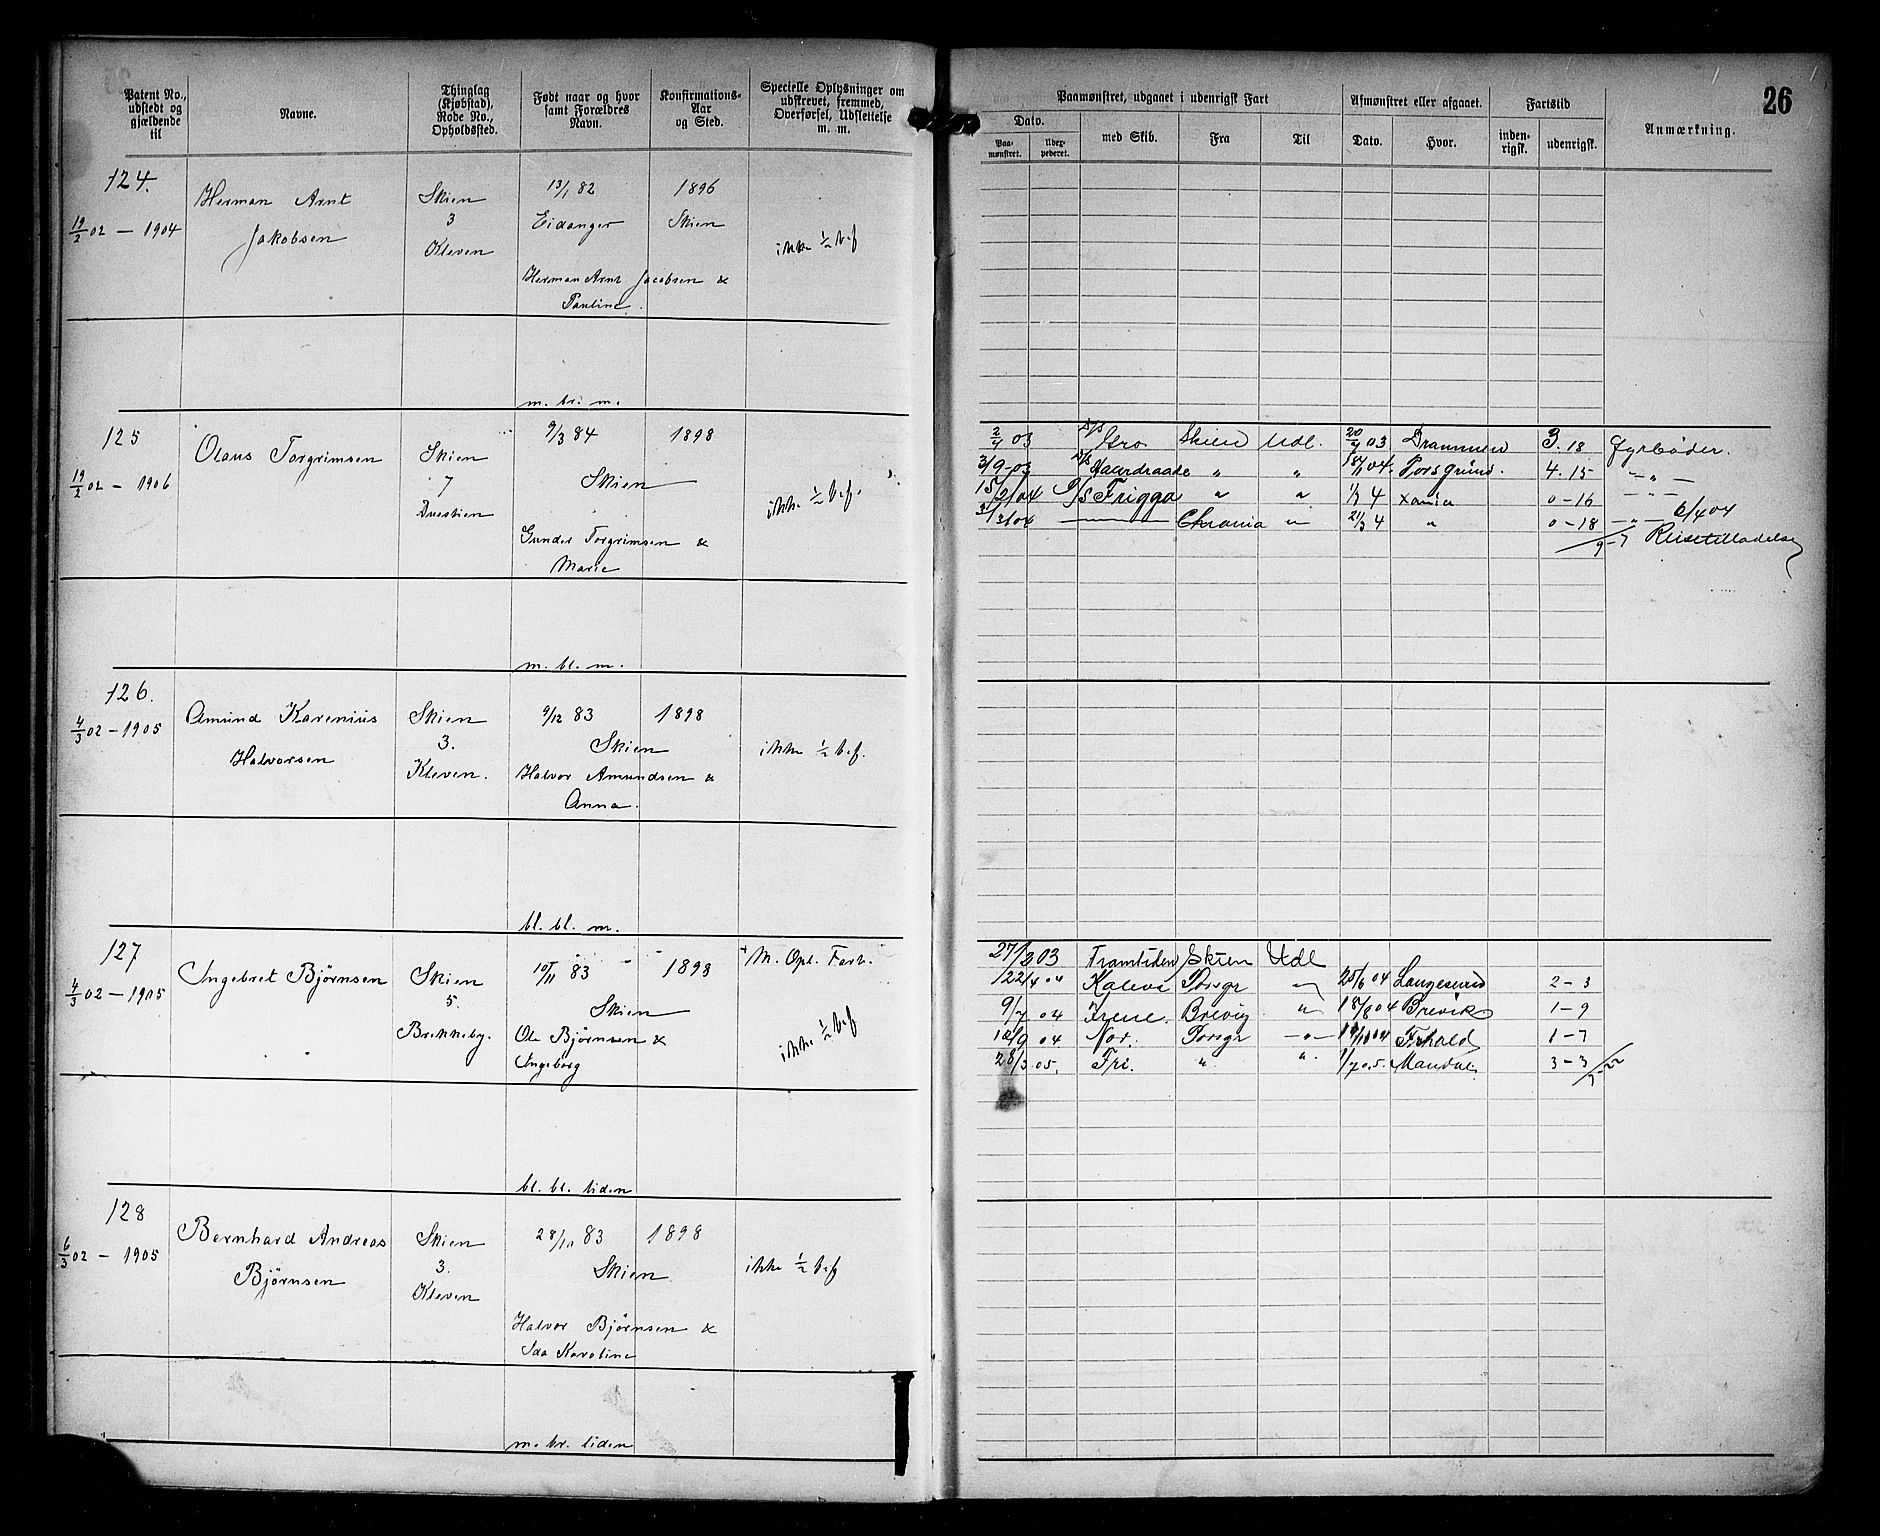 Patent No., udstedt og gjældende til
Navne.
Thinglag (Kjøbstad), Rode No., Opholdssted.
Født naar og hvor samt Forældres Navn.
Konfirmations-Aar og Sted.
Specielle Oplysninger om udskrevet, fremmed, Overførsel, Udslettelse m. m.
124.
19/2 02 – 1904
Herman Arnt
Jakobsen
Skien
3
Kleven
13/1 82
Eidanger
1896
Skien
Herman Arnt Jacobsen &
Pauline.
ikke ½ bef
m. br. m.
125
19/2 02 – 1906
Olaus Torgrimsen
Skien
7
9/3 84
1898
Skien
Gunder Torgrimsen &
Marie
ikke ½ bef.
m. bl. m.
126.
4/3 02 – 1905
Amund Karenius
Halvorsen
Skien
3.
Kleven.
9/12 83
1898
Skien
Halvor Amundsen &
Anna.
ikke ½ bef.
bl. bl. m.
127
4/3 02 – 1905
Ingebret Bjørnsen
Skien
5
Brekkeby.
10/11 83
1898
Skien
Ole Bjørnsen &
Ingeborg
M. Opt. Farv.
ikke ½ bef
bl. bl. liden
128
6/3 02 – 1905
Bernhard Andreas
Bjørnsen
Skien
3.
Kleven
83
1898
Skien
Halvor Bjørnsen &
Ida Karoline
ikke ½ bef
m. br. liden
26
Paamønstret, udgaaet i udenrigsk Fart
Afmønstret eller afgaaet.
Fartstid
Anmærkning.
Dato.
Paa-mønstret.
Udex-pederet.
med Skib.
Fra
Til
Dato.
Hvor.
inden-rigsk.
udenrigsk.
03 D/S Skien Udl. 03 Drammen 3. 18 Fyrbøder.
3/9-03 D/S Haardraade " " 04. Porsgrund. 4. 15 – " –
15/2/04 D/S Frigga " " 4 Xania 0 – 16 – " –
3/3/04 —— Chrania " 21/3 4 " 0 – 18 – " – 6/4 04
9 – 7 Reisetilladelse
27/2 03 Framtiden Skien Udl
22/4 04 Porsgr " 04 Langesund 2 – 3
9/7 04 Irene. Brevig " 18/8 04 Brevik 1 – 9
04 Nor. Porsgr – " – 04 Fr.hald 1 – 7
28/3 05. Fri. " " 1/7 05. Mandal. 3 – 3